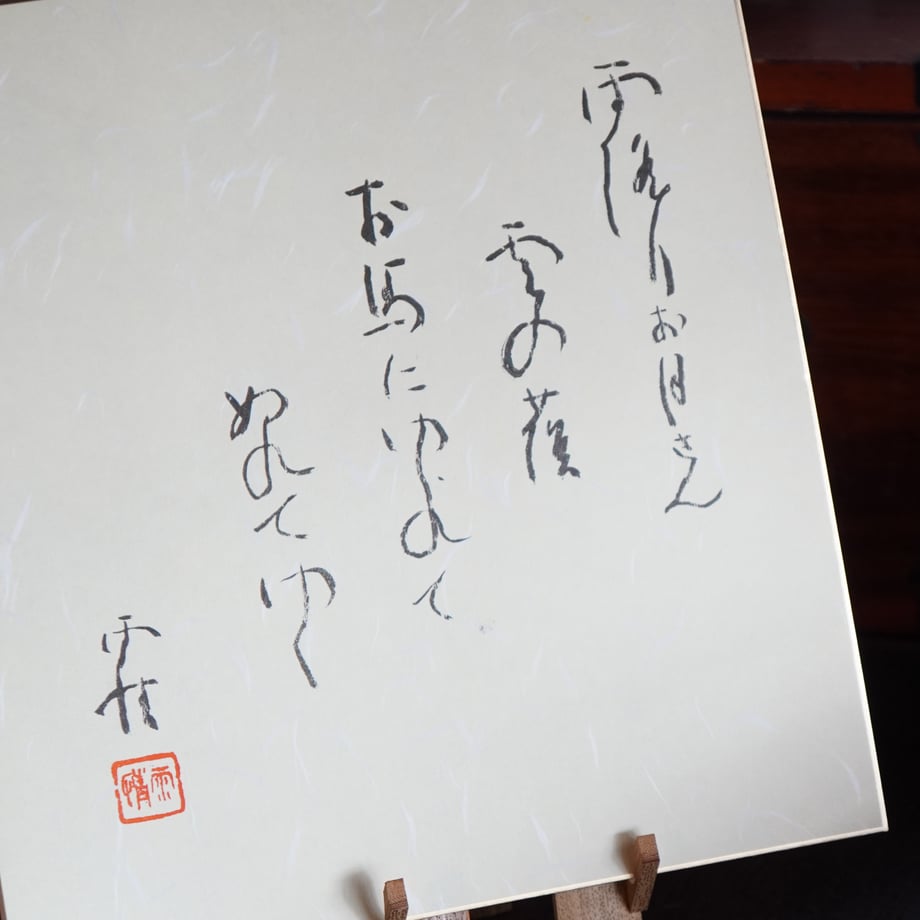 雨降りお月さん
雲の蔭
お馬にゆられて
ぬれてゆく
雨情
雨情